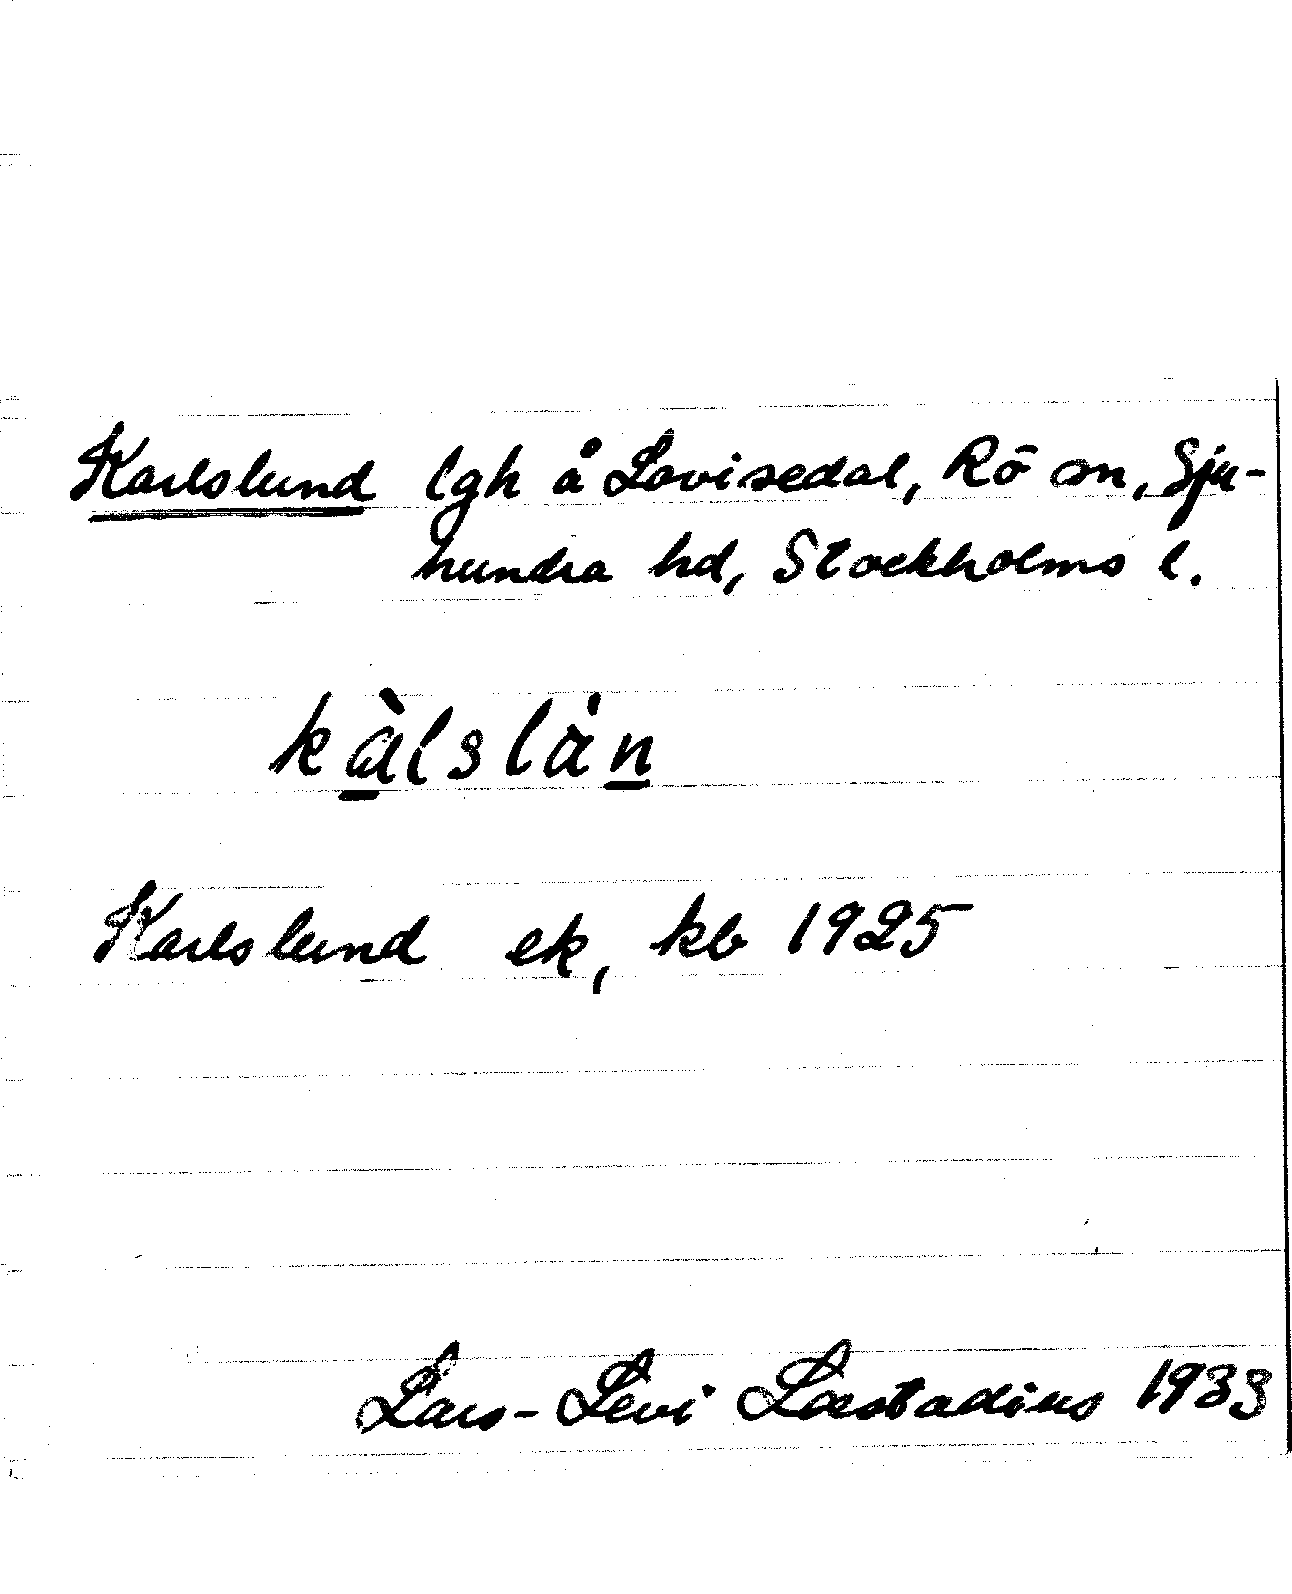 Karlslund lgh å Lovisedal, Rö sn, Sju-
hundra hd, Stockholms l.
kàlslàn
Karlslund ek, kb 1925
Lars-Levi Læstadius 1933